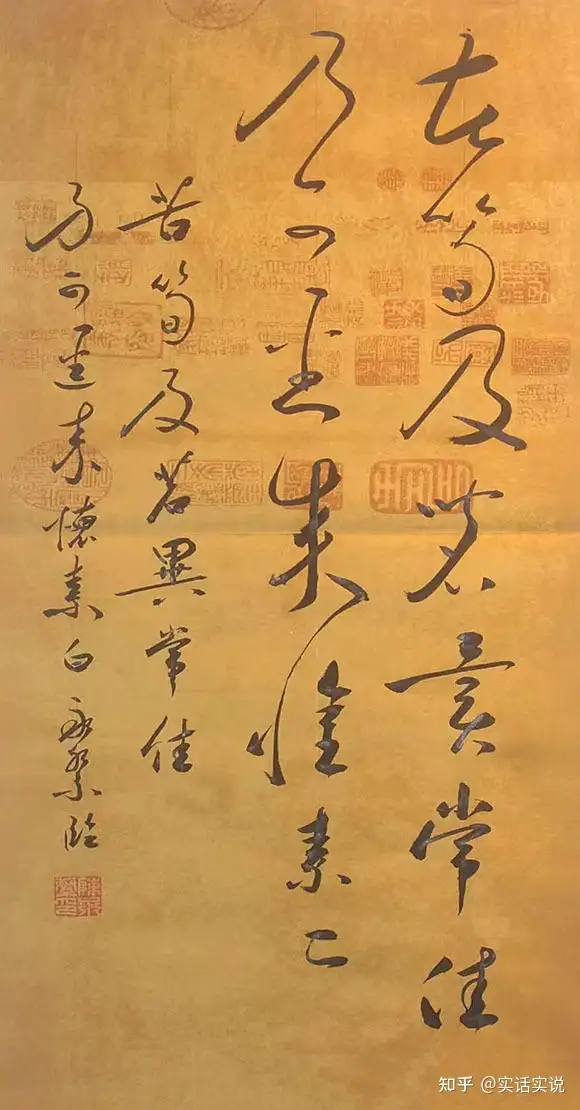 苦筍及茗異常佳
乃可逕來懷素白
苦筍及茗異常佳
乃可逕來懷素白 臨
知乎 @实话实说